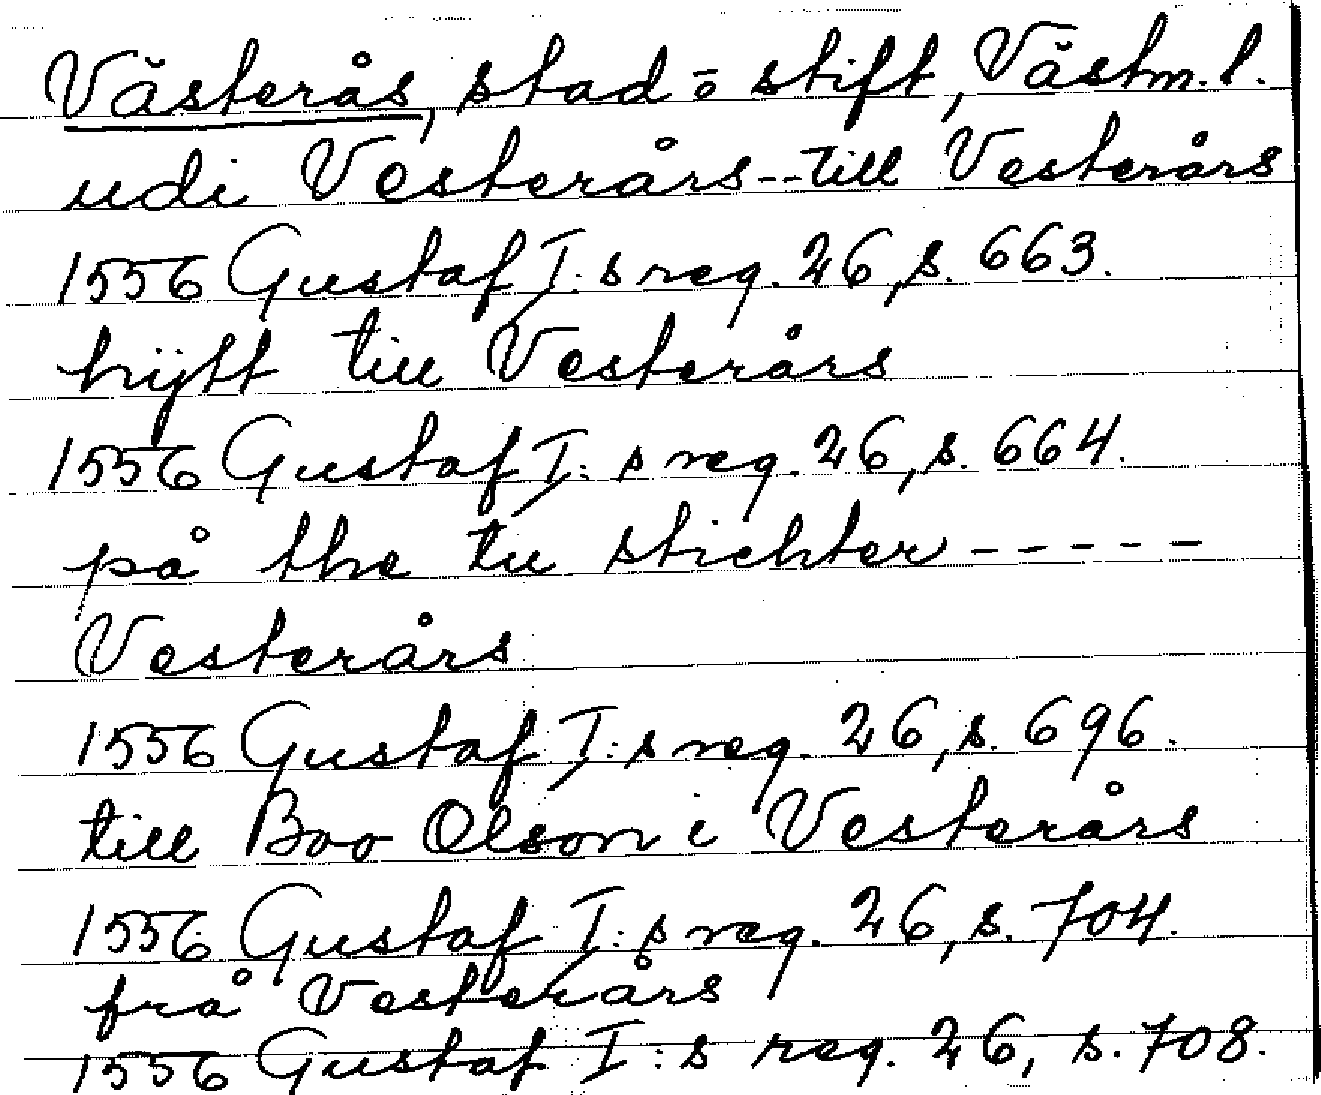 Västerås, stad o stift, Västm. l.
udi Vesterårs -- till Vesterårs
1556 Gustaf I:s reg. 26, s. 663.
hijtt till Vesterårs
1556 Gustaf I:s reg. 26, s. 664.
på the tu stichter -----
Vesterårs
1556 Gustaf I:s reg. 26, s. 696.
till Boo Olson i Vesterårs
1556 Gustaf I:s reg. 26, s. 704.
frå Vesterårs
1556 Gustaf I:s reg. 26, s. 708.